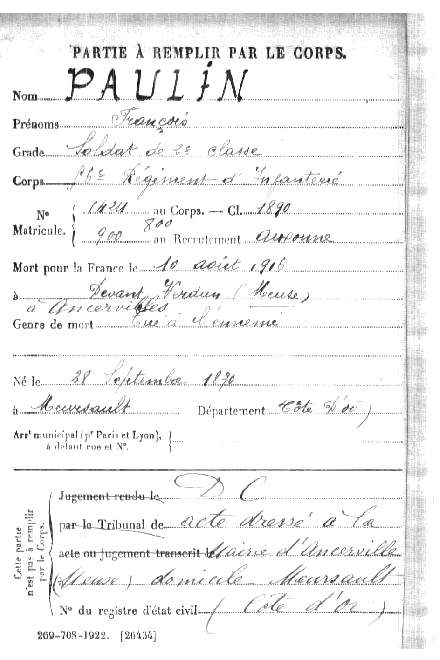 PARTIE À REMPLIR PAR LE CORPS.
Nom PAULIN
Prénoms François
Grade Soldat de 2e classe
Corps 56e Régiment d'Infanterie
800
N° 1424 au Corps. — Cl. 1890
Matricule. 900 au Recrutement Auxonne
Mort pour la France le 10 août 1916
à Devant Verdun (Meuse)
à Ancerville
Genre de mort Tué à l'ennemi
Né le 28 Septembre 1870
à Meursault Département Côte d'or
Arrt municipal (pr Paris et Lyon),
à défaut rue et N°.
Cette partie
n'est pas à remplir
par le Corps.
D C
Jugement rendu le
par le Tribunal de acte dressé à la
acte ou jugement transcrit le Mairie d'Ancerville
(Meuse) domicile Meursault
N° du registre d'état civil (Côte d'or)
269-708-1922. [26434]